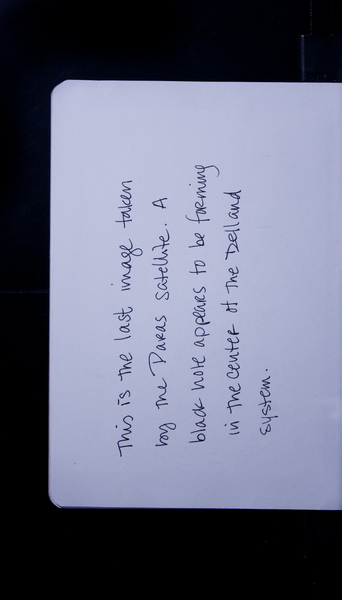 This is the last image taken
by the Daras satellite. A
black hole appears to be forming
in the center of the Delland
system.